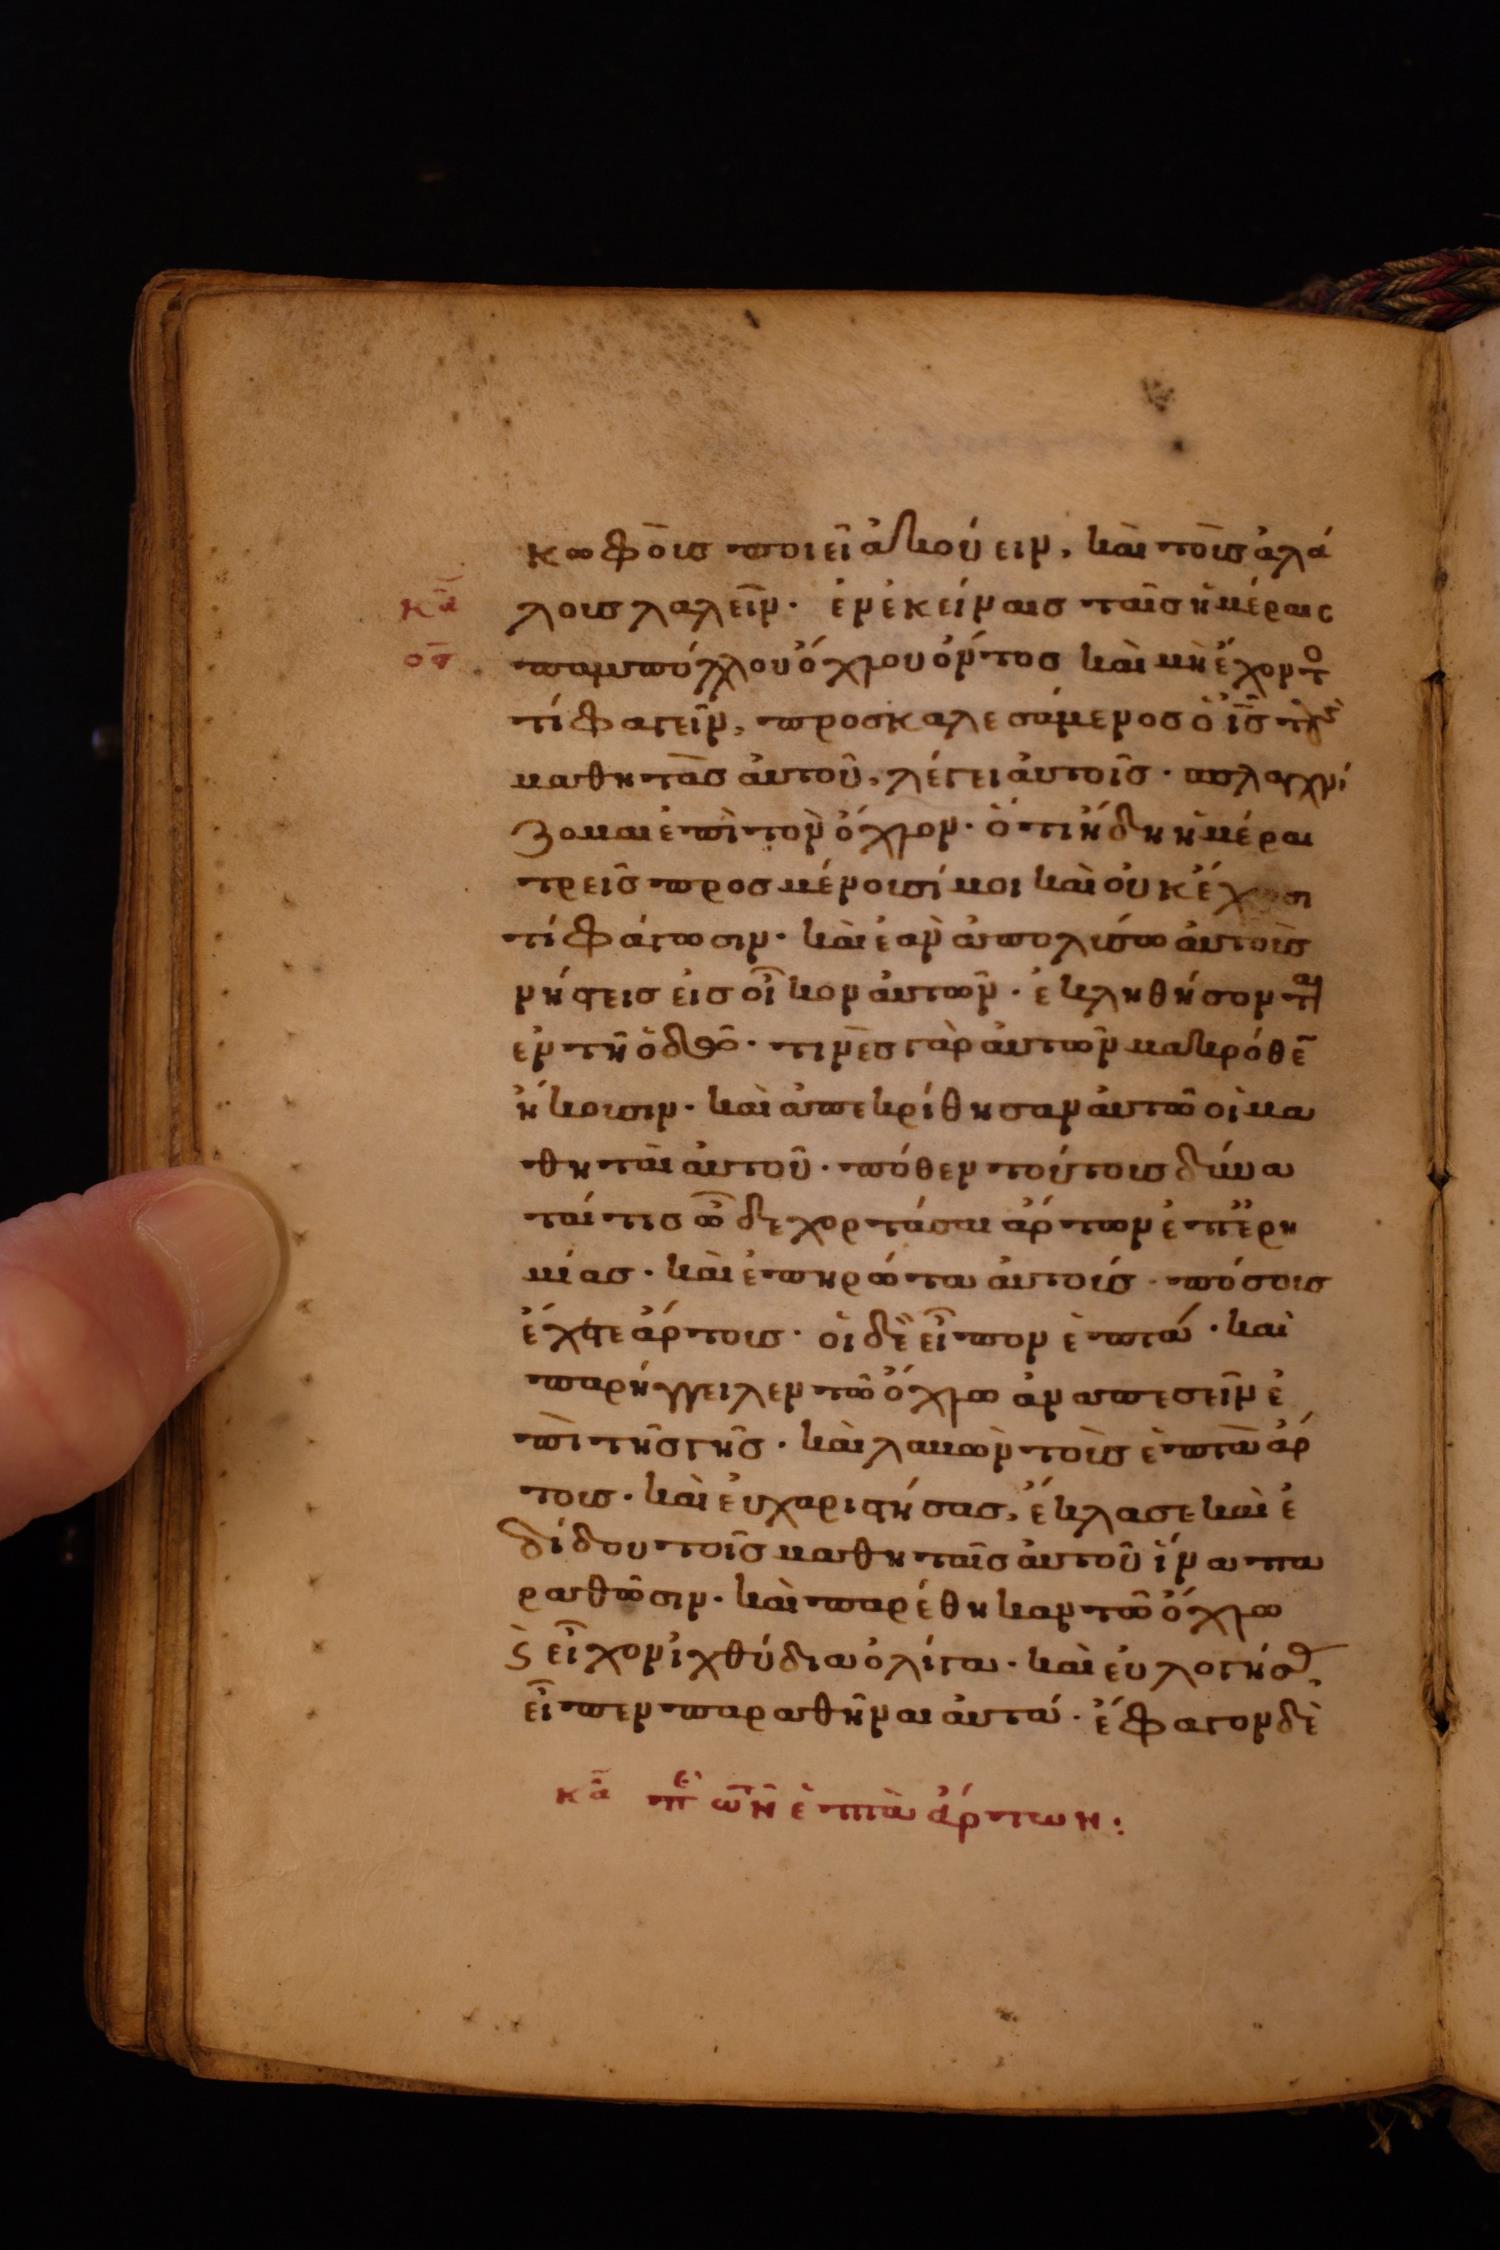 κωφοὺς ποιεῖ ἀκούειν, καὶ τοὺς ἀλά
κα λους λαλεῖν· ἐν ἐκείναις ταῖς ἡμέραις
παμπόλλου ὄχλου ὄντος καὶ μὴ ἐχόντ
τί φαγεῖν, προσκαλεσάμενος ὁ ις τοὺς
μαθητὰς αὐτοῦ, λέγει αὐτοῖς· σπλαγχνί
ζομαι ἐπὶ τὸν ὄχλον· ὅτι ἤδη ἡμέραι
τρεῖς προσμένουσί μοι καὶ οὐκ ἔχουσι
τί φάγωσιν· καὶ ἐὰν ἀπολύσω αὐτοὺς
νήστεις εἰς οἶκον αὐτῶν· ἐκληθήσονται
ἐν τῆ ὁδῶ· τινὲς γὰρ αὐτῶν μακρόθε
ἥκουσιν· καὶ ἀπεκρίθησαν αὐτῶ οἱ μα
θηταὶ αὐτοῦ· πόθεν τούτους δύνα
ταί τις ὧδε χορτάσαι ἄρτων ἐπ ἐρη
μίας· καὶ ἐπηρώτα αὐτούς· πόσους
ἔχετε ἄρτους· οἱ δὲ εἶπον ἑπτά· καὶ
παρήγγειλεν τῶ ὄχλω ἀναπεσεῖν ἐ
πὶ τῆς γῆς· καὶ λαβὼν τοὺς ἑπτὰ ἄρ
τους· καὶ εὐχαριστήσας, ἔκλασε καὶ ἐ
δίδου τοῖς μαθηταῖς αὐτοῦ ἵνα πα
ραθῶσιν· καὶ παρέθηκαν τῶ ὄχλω
ϛ εἶχον ἰχθύδια ὀλίγα· καὶ εὐλογήσ
εἶπεν παραθῆναι αὐτά· ἔφαγον δὲ
κα π τῶν ἑπτὰ ἄρτων: